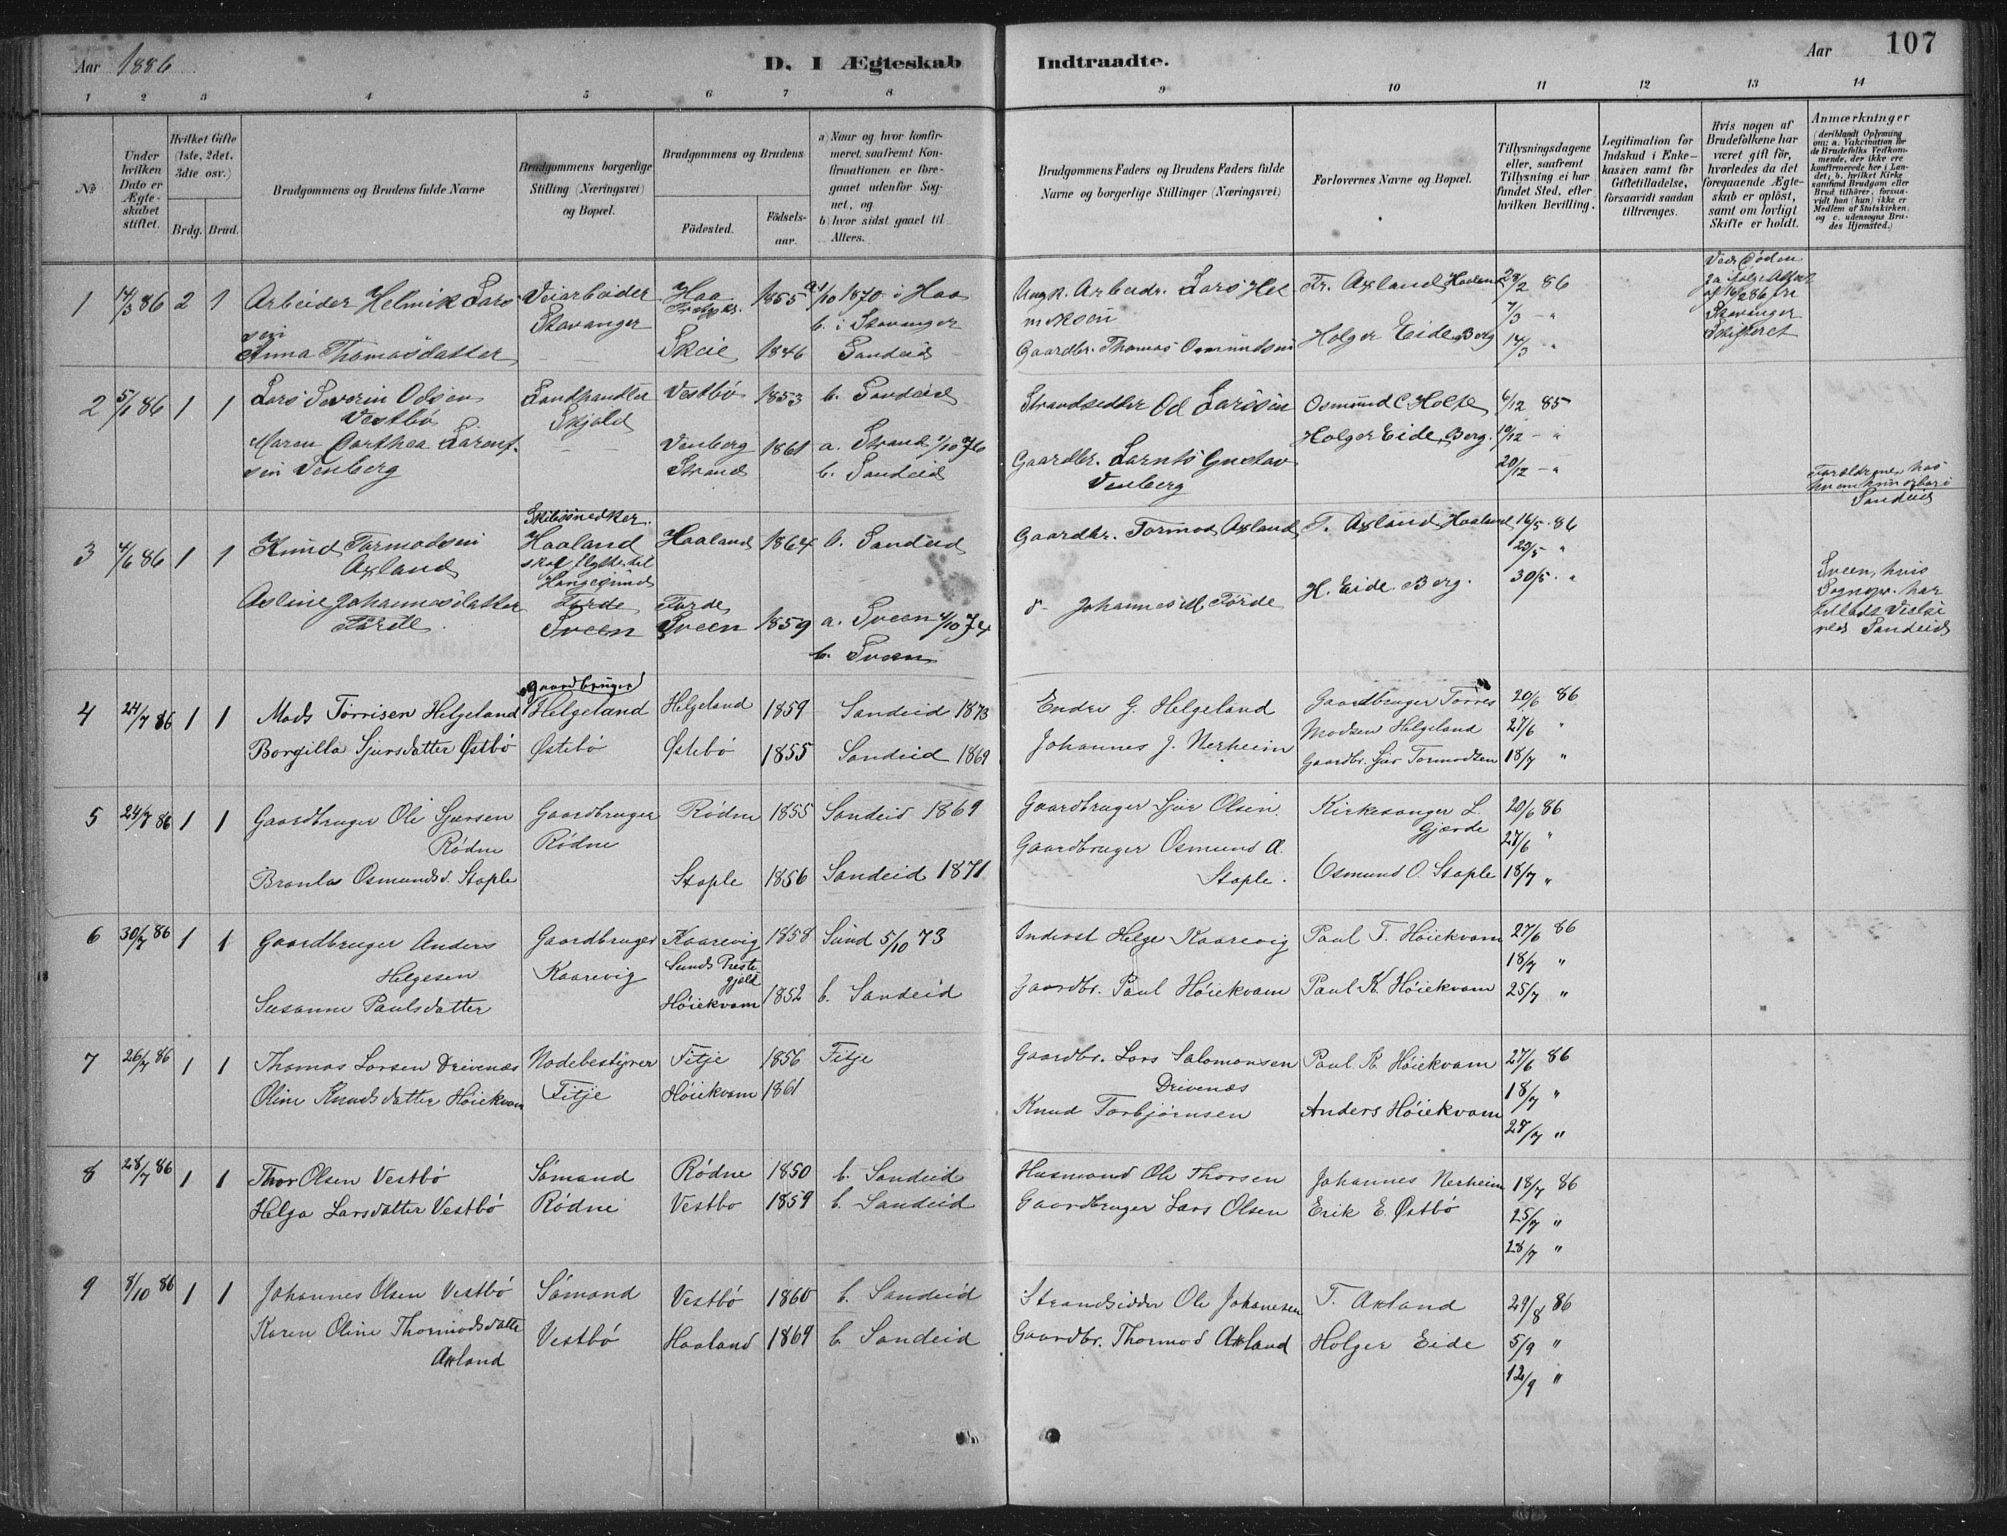 Aar 1886
D. I Ægteskab Indtraadte.
Aar 107
1 2 3 4 5 6 7 8 9 10 11 12 13 14
No
Under hvilken Dato er Ægteskabet stiftet.
Hvilket Gifte (1ste, 2det, 3die osv.)
Brdg. Brud.
Brudgommens og Brudens fulde Navne
Brudgommens borgerlige Stilling (Næringsvei) og Bopæl.
Brudgommens og Brudens
Födested.
Födselsaar.
a) Naar og hvor konfirmeret, saafremt Konfirmationen er foregaaet udenfor Sognet, og
b) hvor sidst gaaet til Alters.
Brudgommens Faders og Brudens Faders fulde Navne og borgerlige Stillinger (Næringsvei)
Forlovernes Navne og Bopæl.
Tillysningsdagene eller, saafremt Tillysning ei har fundet Sted, efter hvilken Bevilling.
Legitimation for Indskud i Enkekassen samt for Giftetilladelse, forsaavidt saadan tiltrænges.
Hvis nogen af Brudefolkene har været gift før, hvorledes da det foregaaende Ægteskab er oplöst, samt om lovligt Skifte er holdt.
Anmærkninger
(deriblandt Oplysning om: a. Vakcination for de Brudefolks Vedkommende, der ikke ere konfirmerede her i Landet, b. hvilket Kirkesamfund Brudgom eller Brud tilhører, forsaavidt han (hun) ikke er Medlem af Statskirken, og c. udensogns Brudes Hjemsted.)
1 14/3 86 2 1 Arbeider Helmik Lars Veiarbeider Haa 1855 a. 1/10 1870 i Haa Lars Hel Fr. Axland Haaland 28/2 86 Ved Døden
sen Stavanger b. i Stavanger miksen 7/3 - "
Anna Thomasdatter Skeie 1846 Sandeid Gaardbr. Thomas Osmundsen Holger Eide Berg 14/3 " Stavanger
2 5/1 86 1 1 Lars Severin Odsen Landhandler Vestbø 1853 b. Sandeid Strandsidder Od Larssen Osmund C Holte 6/12 85
Vestbø Skjold
Maren Dorthea Larent- Venberg 1861 a. Strand 1/10 76 Gaardbr. Larnts Gustav Holger Eide, Berg. 12/12 - "
sen Venberg Strand b. Sandeid Venberg 20/12 - "
Sandeid
3 4/6 86 1 1 Knud Tormodsen Haaland Haaland 1864 b. Sandeid Gaardbr. Tormod Axland T. Axland Haaland 16/5 86
Axland skal flytte til 23/5 "
Haugesund 30/5 "
Asline Johannesdatter Førde Førde 1859 a. Sveen 4/10 74 Johannes M. Førde H. Eide Berg. Sveen, hvis
Førde Sveen Sveen b. Sveen Sognepr. har
Sandeid
4 24/7 86 1 1 Mads Tørrisen Helgeland Gaardbruger Helgeland Helgeland 1859 Sandeid 1873 Endre G. Helgeland Gaardbruger Tørres 20/6 86
Madsen Helgeland 27/6 "
Borgilla Sjursdatter Østbø Østebø Østebø 1855 Sandeid 1869 Johannes J. Nerheim Gaardbr. Sjur Tormodsen 18/7 "
5 24/7 86 1 1 Gaardbruger Ole Sjursen Gaardbruger Rødne 1855 Sandeid 1869 Gaardbruger Sjur Olsen. Kirkesanger L. 20/6 86
Rødne Rødne Gjærde 27/6 "
Branlas Osmundsd. Staple Staple 1856 Sandeid 1871 Gaardbruger Osmund A. Staple. Osmund O. Staple 18/7 "
6 30/7 86 1 1 Gaardbruger Anders Gaardbruger Kaarevig 1858 Sund 5/10 73 Inderst Helge Kaarevig Paul T. Høiekvam 27/6 86
Helgesen Kaarevig Sunds Prestegjeld 18/7 "
Susanne Paulsdatter Høiekvam 1852 b. Sandeid Gaardbr. Paul Høiekvam Paul K. Høiekvam 25/7 "
7 26/7 86 1 1 Thomas Larsen Drivenæs Nodebestyrer Fitje 1856 Fitje Gaardbr. Lars Salomonsen Paul K. Høiekvam 27/6 86
Drivenæs 18/7 "
Oline Knudsdatter Høiekvam Fitje Høiekvam 1861 Knud Torbjørnsen Anders Høiekvam 25/7 "
8 28/7 86 1 1 Thor Olsen Vestbø Sømand Rødne 1850 b. Sandeid Husmand Ole Thorsen Johannes Nerheim 18/7 86
Helga Larsdatter Vestbø Rødne Vestbø 1859 b. Sandeid Gaardbruger Lars Olsen Erik E. Østbø 25/7 "
28/7 "
9 8/10 86 1 1 Johannes Olsen Vestbø Sømand Vestbø 1860 b. Sandeid Strandsidder Ole Johanesen T. Axland 29/8 86
Karen Oline Thormodsdatte Vestbø Haaland 1869 b. Sandeid Gaardbr. Thormod Axland Holger Eide 5/9 "
Axland 12/9 "